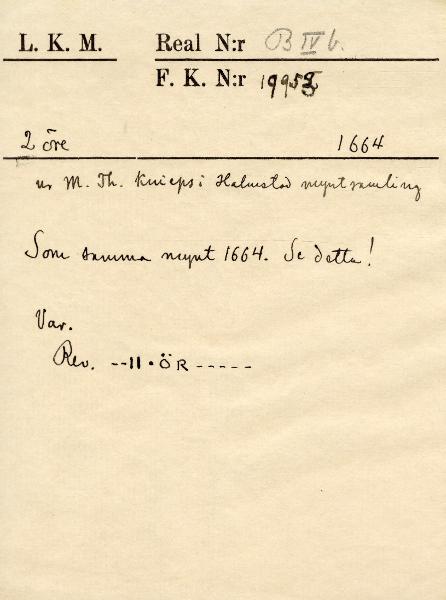 L. K. M. Real N:r B IV b.
F. K. N:r
2 öre 1664
ur M. Th. Knieps i Halmstad myntsamling
Som samma mynt 1664. Se detta!
Var.
Rev. --II•ÖR-----